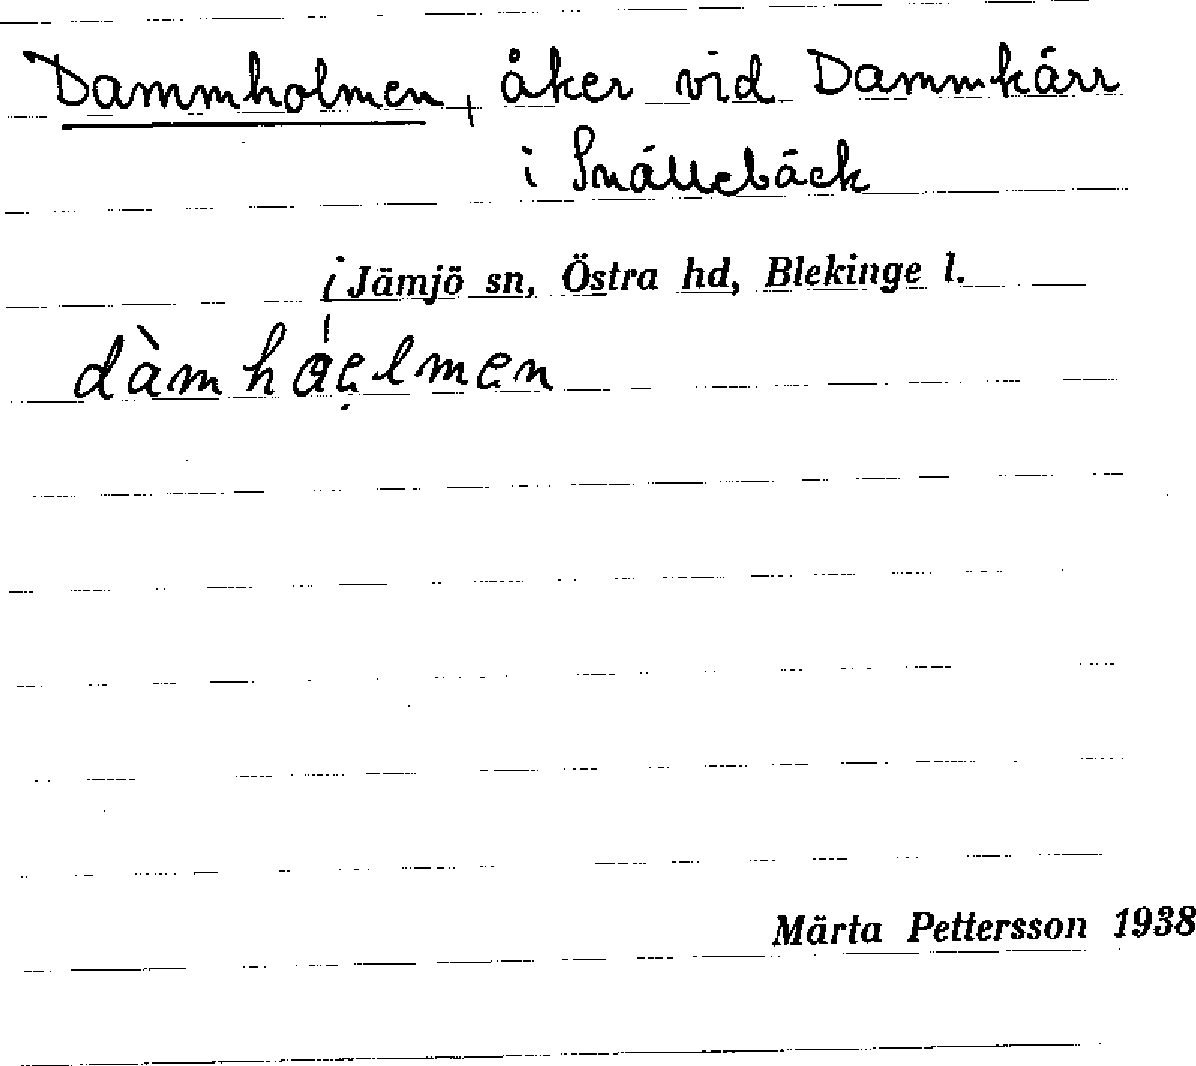 Dammholmen, åker vid Dammkärr
i Snällebäck
i Jämjö sn, Östra hd, Blekinge l.
dàmháelmen
Märta Pettersson 1938